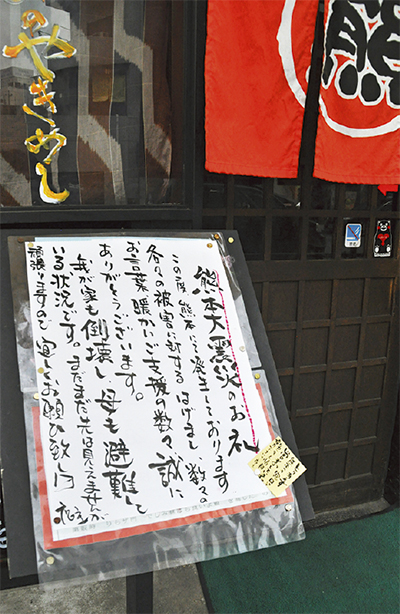 のやきめし
熊
熊本大震災のお礼
この度 熊本にて発生しております
各々の被害に対するはげまし、数々の
お言葉、暖かいご支援の数々誠に
ありがとうございます。
我が家も倒壊し、母も避難して
いる状況です。まだまだ先は見えませんが
頑張りますので宜しくお願い致します